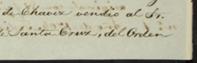 de Chavez vendió al Sr.
Santa Cruz, del Orden